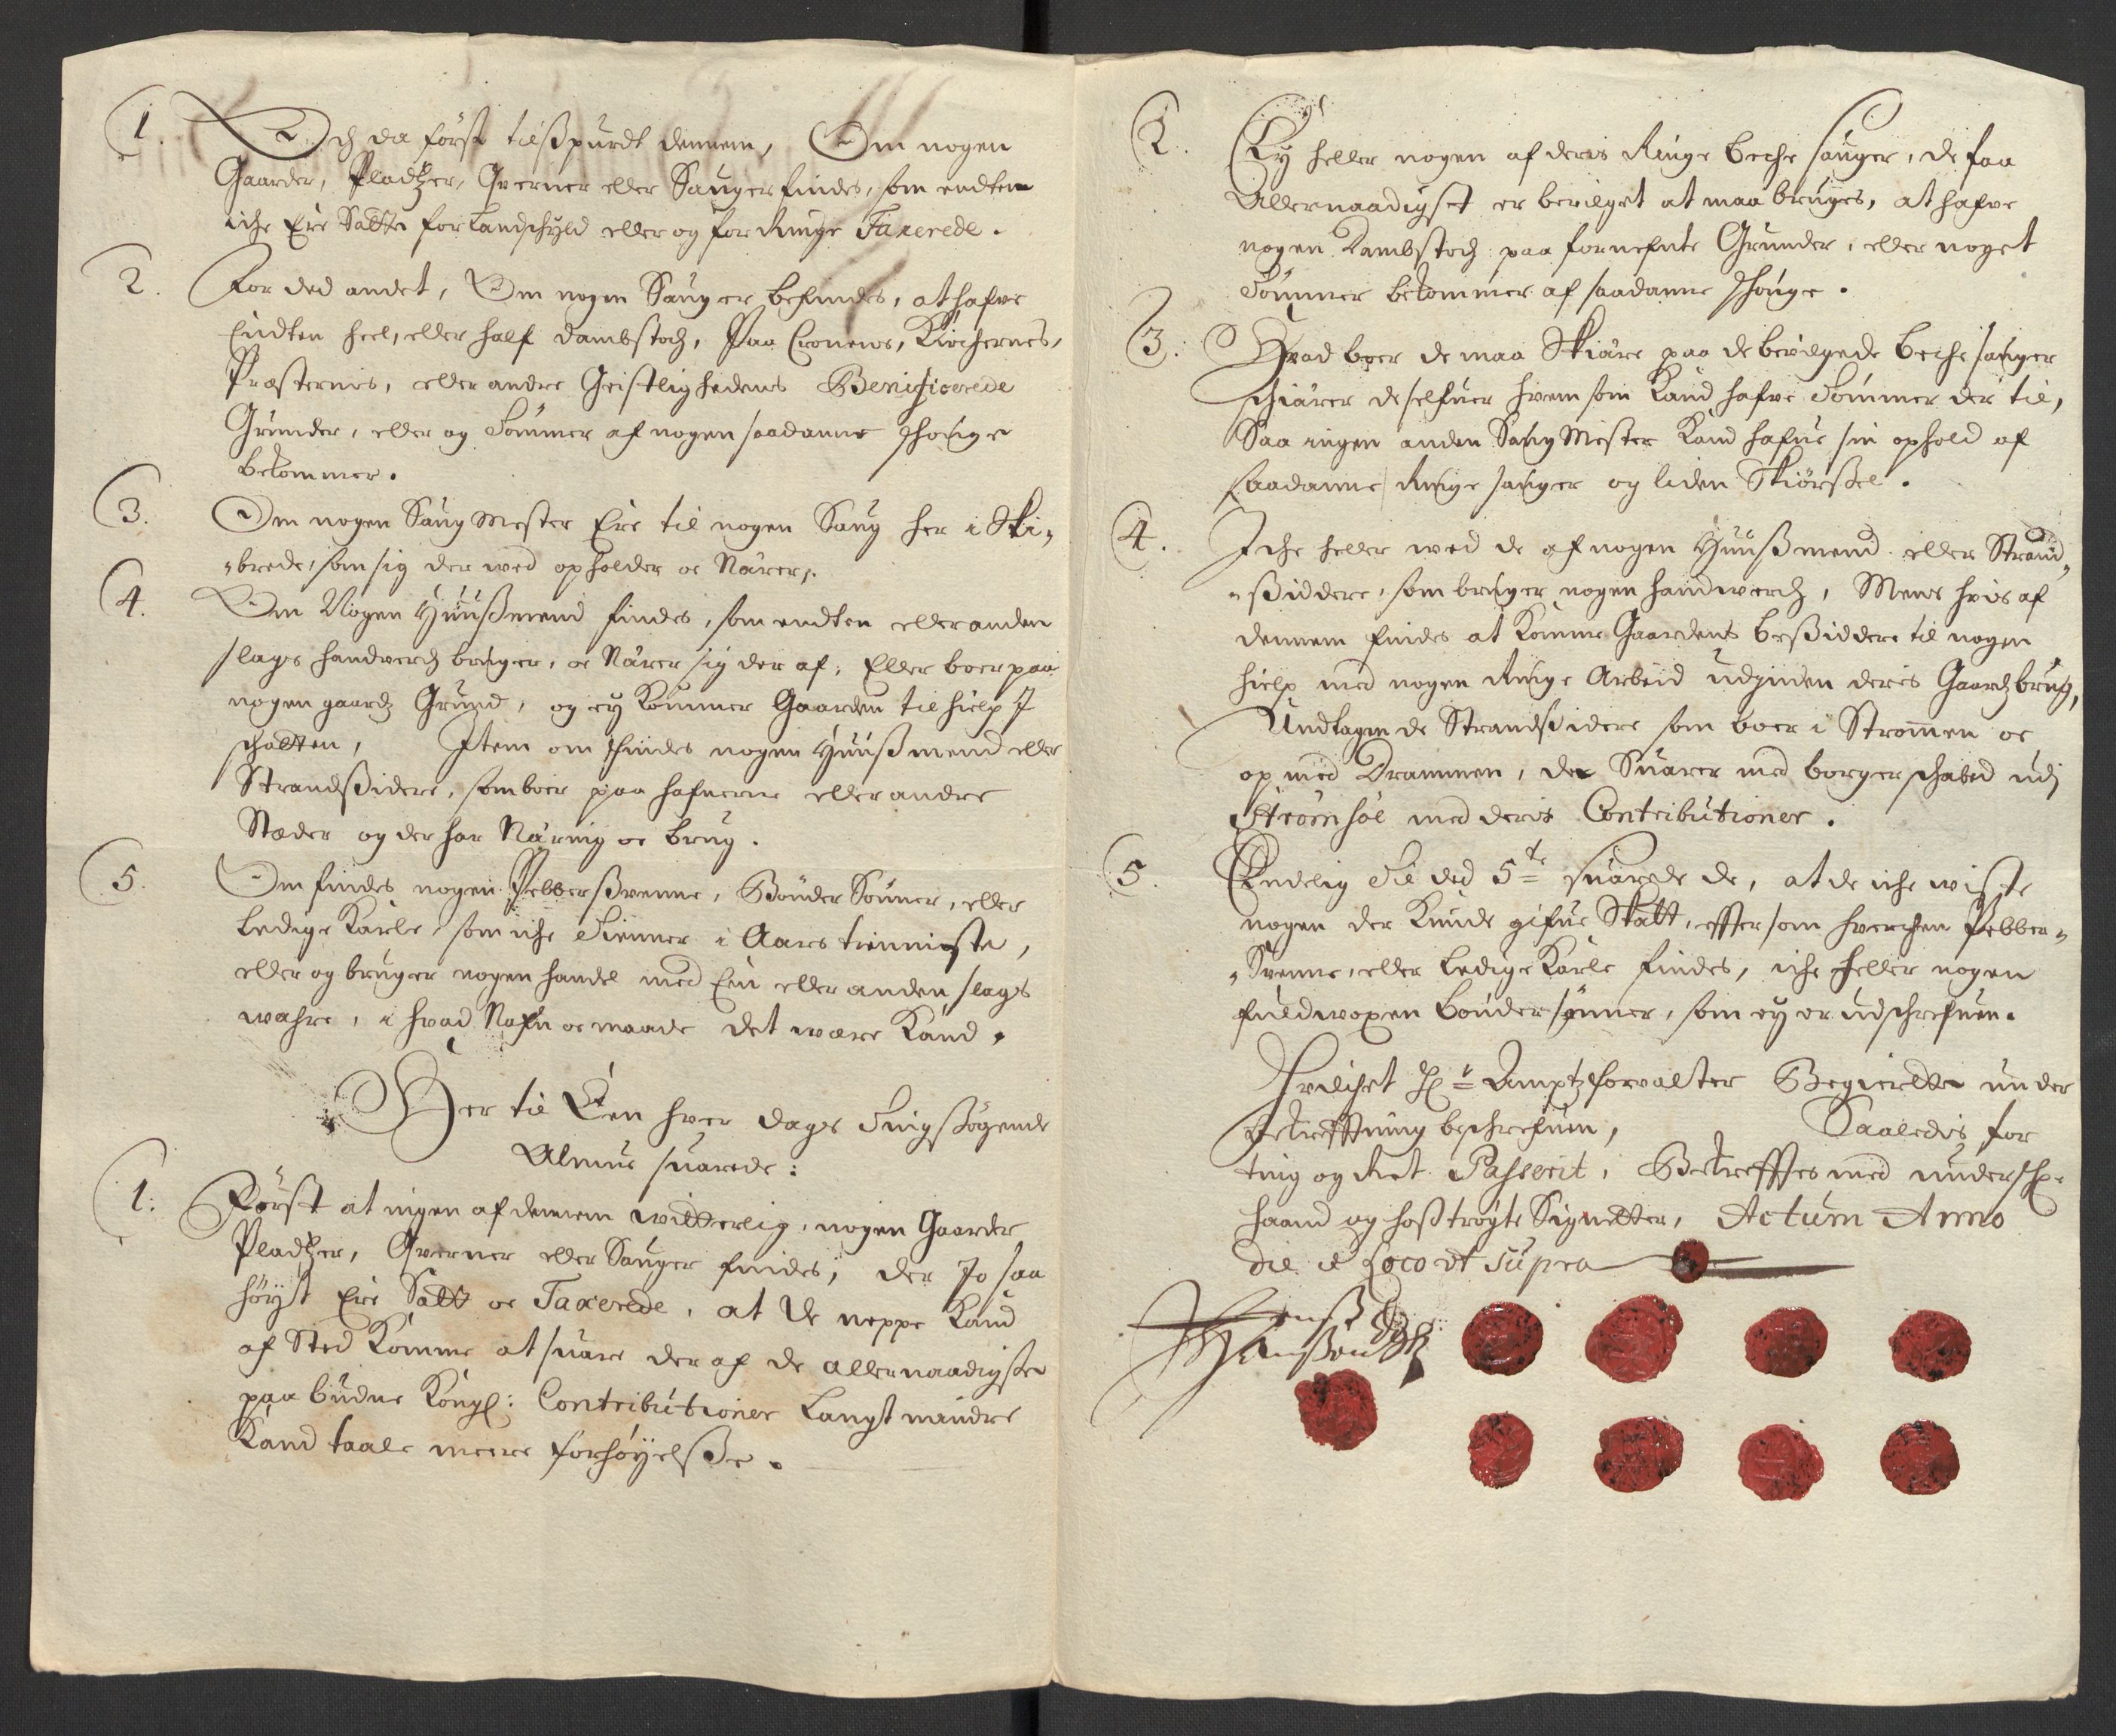 1. Och da först tilspurdt dennem, Om nogen
Gaarder, Pladtzer, Qverner eller Sauger findes, som endten
iche Ere Satte for Landschyld eller og for Ringe Taxerede.
2. For ded andet, Om nogen Sauger befindes, at hafve
Endten heel, eller half dambstoch, Paa Cronens, Kirchernes,
Præsternis, eller andre Geistlighedens Benificerede
Grunder, eller og Tömmer af nogen saadanne Schouge
bekommer.
3. Om nogen Saug Mester Ere til nogen Saug her i Ski„
„brede, som sig der wed opholder oc Närer.
4. Om Nogen Huusmend findes, som endten eller anden
slags handverch bruger, oc Närer sig der af, Eller boer paa
nogen gaardz Grund, og ey Kommer Gaarden til hielp J
schatten, Jtem om findes nogen Huusmend eller
Strandsidere, som boer paa hafnerne eller andre
Stæder og der har Näring oc brug.
5. Om findes nogen Pebbersvenne, Bönder Sönner, eller
Ledige Karle, som iche Tienner i Aars tienniste,
eller og bruger nogen handel med Een eller anden slags
wahre, i hvad Nafn oc maade det være Kand.
Her til Een hver dags Tingsögende
Almue suarede:
1: Först at ingen af dennem witterlig, nogen Gaarder
Pladtzer, Qverner eller Sauger findes, der Jo saa
höyst Ere Satt oc Taxerede, at De neppe Kand
af Sted Komme at suare der af de allernaadigste
paa budne Kongl: Contributioner Langt mindre
Kand taale meere forhöyelsse.
2. Ey heller nogen af deris Ringe beche sauger, de faa
Allernaadigst er bevilget at maa bruges, at hafve
nogen Dambstoch paa fornefnte Grunder, eller noget
Tömmer bekommer af saadanne Schouge.
3: Hvad boer de maa Skiäre paa de bevilgede beche sauger
schiärer de selfuer hvem som Kand hafve Tömmer der til,
Saa ingen anden Saug Mester Kand hafue sin ophold af
saadanne Ringe sauger og liden Skiörssel.
4. Jche heller wed de af nogen Huusmend eller Strand„
„siddere, som bruger nogen handwerch, Mens hvis af
dennem findes at Komme Gaardens besiddere til nogen
hielp med nogen Ringe Arbeid udjnden deris Gaardzbrug,
Undtagen de Strandsidere som boer i Strömmen oc
op med Drammen, der Suarer med borgerschabed udj
Strömsöe med deris Contributioner.
5. Endelig Til ded 5te suarede de, at de iche wiste
nogen der Kunde gifue Skatt, efftersom hverchen Pebber„
„Svenne, eller Ledige Karle findes, iche heller nogen
fuldwoxen bonder sönner, som ey er udschrefuen.
Hvilchet Hr Amptzforvalter Begierte under
bekrefftning beschrefuen, Saaledis for
ting og Ret Passerit, Bekrefftes med underschr.
haand og hoströgte Signetter, Actum Anno
die et Loco ut supra